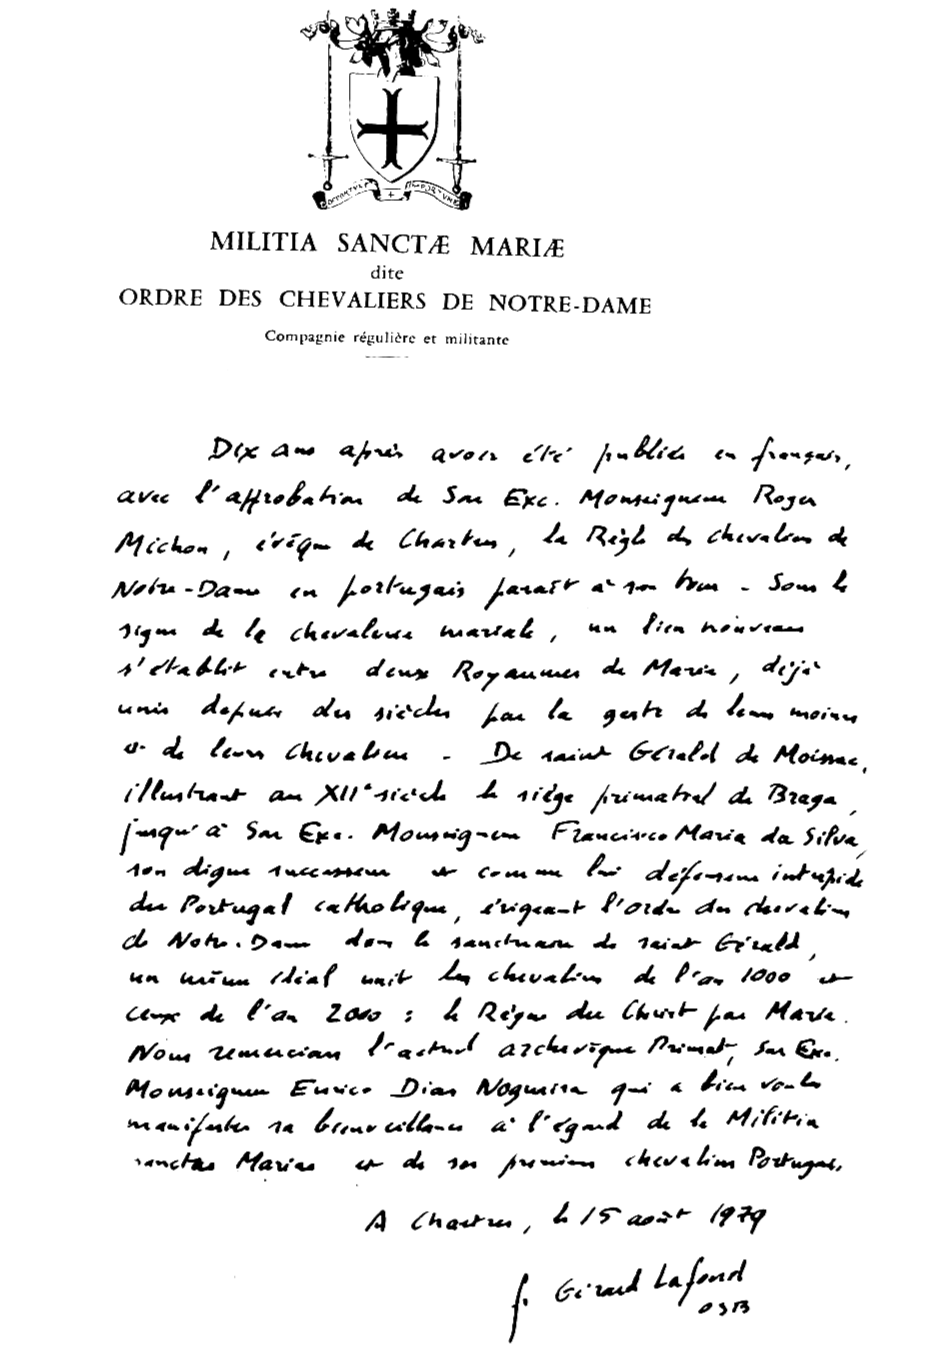 OPPORTUNE
IMPORTUNE
MILITIA SANCTÆ MARIÆ
dite
ORDRE DES CHEVALIERS DE NOTRE-DAME
Compagnie régulière et militante
Dix ans après avoir été publiée en français,
avec l'approbation de Son Exc. Monseigneur Roger
Michon, évêque de Chartres, la Règle des chevaliers de
Notre-Dame en portugais paraît à son tour - Sous le
signe de la chevalerie mariale, un lien nouveau
s'établit entre deux Royaumes de Marie, déjà
unis depuis des siècles par la geste de leurs moines
et de leurs chevaliers - De saint Gérald de Moissac,
illustrant au XIIe siècle le siège primatial de Braga,
jusqu'à Son Exc. Monseigneur Francisco Maria da Silva,
son digne successeur et comme lui défenseur intrépide
du Portugal catholique, érigeant l'ordre des chevaliers
de Notre-Dame dans le sanctuaire de saint Gérald,
un même idéal unit les chevaliers de l'an 1000 et
ceux de l'an 2000 : le Règne du Christ par Marie.
Nous remercions l'actuel archevêque Primat, Son Exc.
Monseigneur Eurico Dias Nogueira qui a bien voulu
manifester sa bienveillance à l'égard de la Militia
sanctae Mariae et de ses premiers chevaliers Portugais.
A Chartres, le 15 août 1979
f. Gérard Lafond
OSB